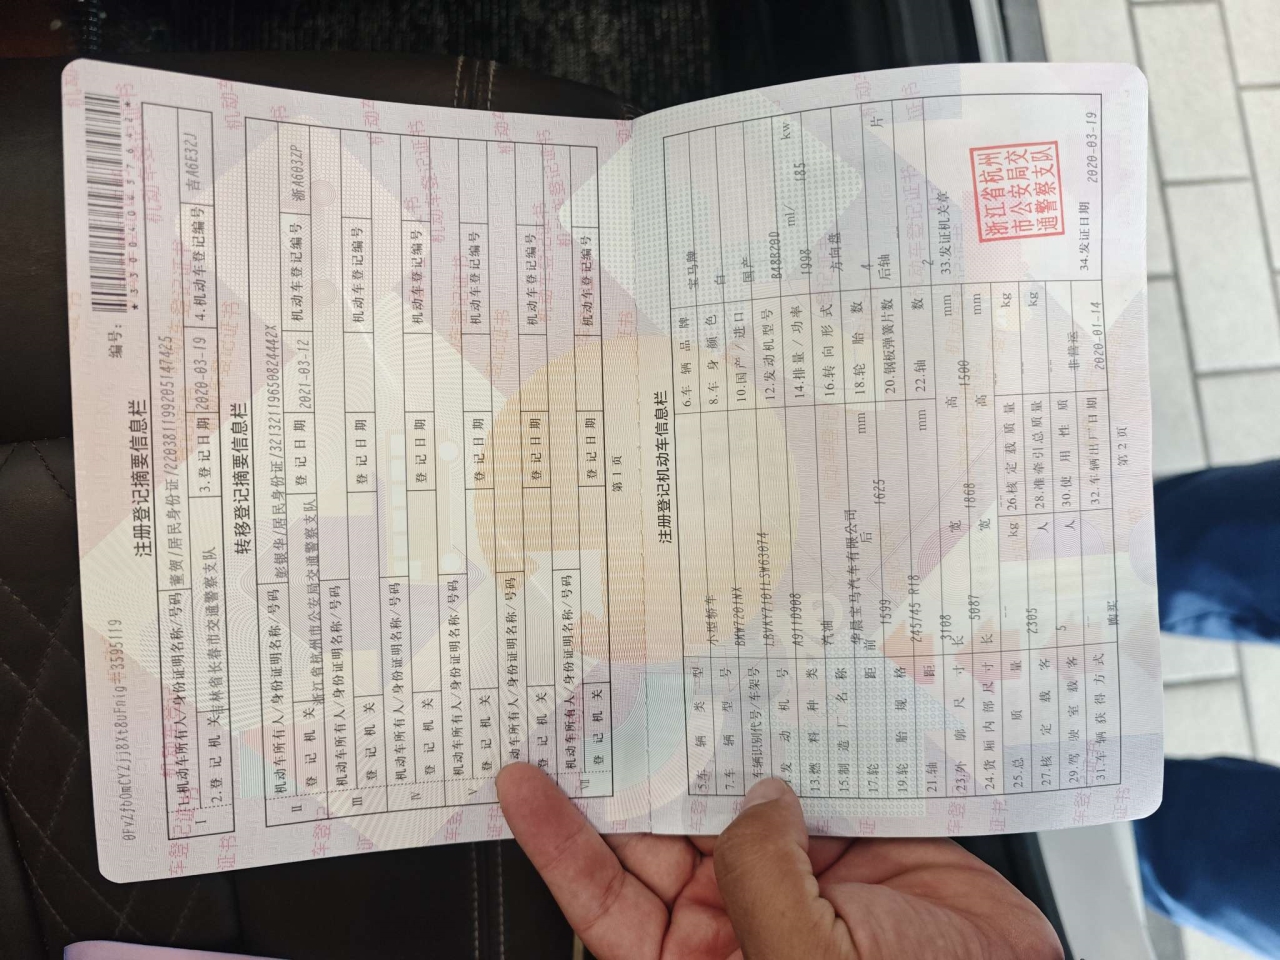 0FvZfbOmCYZjj8Xt8uFnig#3595119
编号：
注册登记摘要信息栏
Ⅰ 1.机动车所有人/身份证明名称/号码 董贺/居民身份证/220381199205147425
2.登记机关 吉林省长春市交通警察支队 3.登记日期 2020-03-19 4.机动车登记编号 吉A6E32J
转移登记摘要信息栏
Ⅱ 机动车所有人/身份证明名称/号码 彭银华/居民身份证/32132119650824442X
登记机关 浙江省杭州市公安局交通警察支队 登记日期 2021-03-12 机动车登记编号 浙A6032P
Ⅲ 机动车所有人/身份证明名称/号码
登记机关 登记日期 机动车登记编号
Ⅳ 机动车所有人/身份证明名称/号码
登记机关 登记日期 机动车登记编号
Ⅴ 机动车所有人/身份证明名称/号码
登记机关 登记日期 机动车登记编号
机动车所有人/身份证明名称/号码
登记机关 登记日期 机动车登记编号
Ⅶ 机动车所有人/身份证明名称/号码
登记机关 登记日期 机动车登记编号
第 1 页
注册登记机动车信息栏
5.车辆类型 小型轿车 6.车辆品牌 宝马牌
7.车辆型号 BMW7201NX 8.车身颜色 白
车辆识别代号/车架号 LBVKY7101LSW63074 10.国产/进口 国产
发动机号 A9110908 12.发动机型号 B48B20D
13.燃料种类 汽油 14.排量/功率 1998 ml/ 185 kw
15.制造厂名称 华晨宝马汽车有限公司 16.转向形式 方向盘
17.轮距 前 1599 后 1625 mm 18.轮胎数 4
19.轮胎规格 245/45 R18 20.钢板弹簧片数 后轴 片
21.轴距 3108 mm 22.轴数 2
23.外廓尺寸 长 5087 宽 1868 高 1500 mm
24.货厢内部尺寸 长 宽 高 mm
25.总质量 2305 kg 26.核定载质量 kg
27.核定载客 5 人 28.准牵引总质量 kg
29.驾驶室载客 人 30.使用性质 非营运
31.车辆获得方式 购买 32.车辆出厂日期 2020-01-14
33.发证机关章
浙江省杭州
市公安局交
通警察支队
34.发证日期 2020-03-19
第 2 页